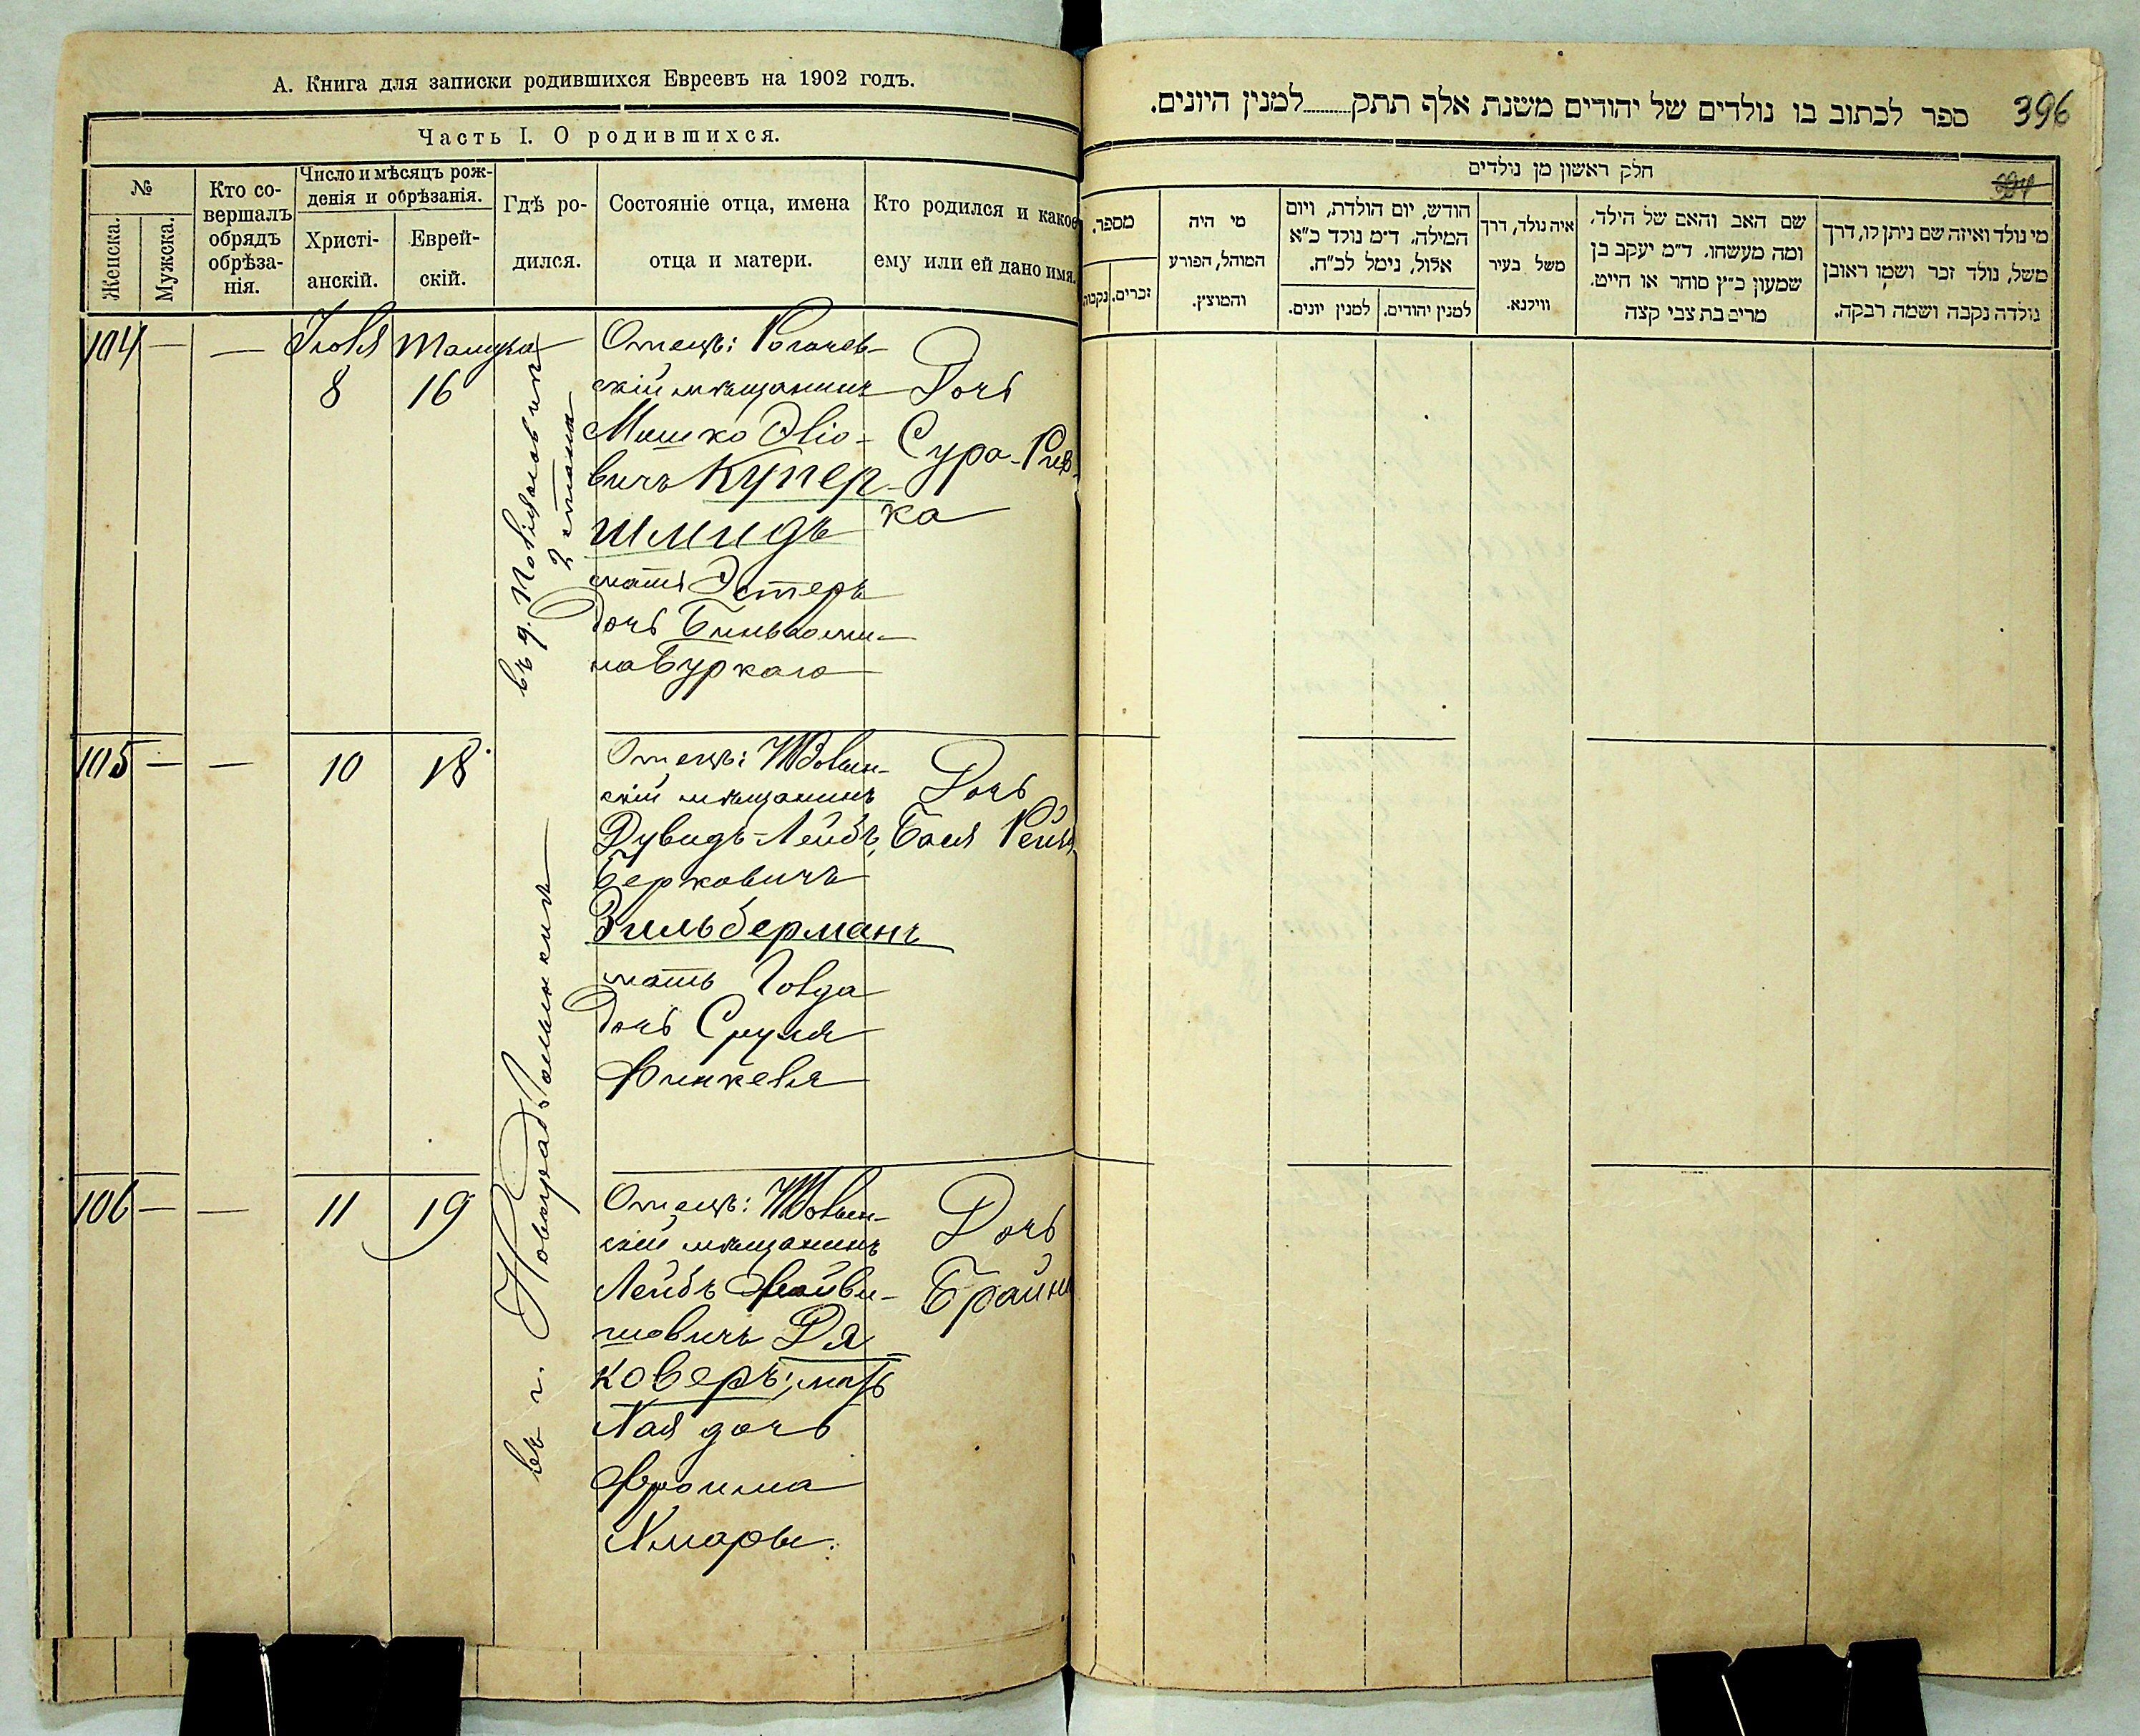 А. Книга для записки родившихся Евреевъ на 1902 годъ.
Часть I. О родившихся.
№
Женска.
Мужска.
Кто со-
вершалъ
обрядъ
обрѣза-
нія.
Число и мѣсяцъ рож-
денія и обрѣзанія.
Христі-
анскій.
Еврей-
скій.
Гдѣ ро-
дился.
Состояніе отца, имена
отца и матери.
Кто родился и какое
ему или ей дано имя.
104 — —
Іюля
8
16
2 стана
Отецъ: Рогачев-
скій мѣщанинъ
Мошко
вичъ Купер-
шмидъ
мать Эстеръ
дочь
Дочь
Сура-Рив-
ка
105 — — 10 18
въ г. Новоградволынскѣ
Отецъ:
скій мѣщанинъ
Дувидъ-Лейбъ
Берковичъ
Зильберманъ
мать Говда
дочь Сруля
Финкеля
Дочь
Бася
106 — — 11 19
Отецъ:
скій мѣщанинъ
Лейбъ Файви-
шовичъ Дя
коверъ; мать
Хая дочь
Фроима
Хмары.
Дочь
396
ספר לכתוב בו נולדים של יהודים משנת אלף תתק........למנין היונים.
חלק ראשון מן נולדים
מספר.
זכרים.
נקבות
מי היה
המוהל, הפורע
והמוצץ.
הודש, יום הולדת, ויום
המילה. ד״מ נולד כ״א
אלול, נימל לכ״ח.
למנין יונים.
למנין יהודים.
איה נולד, דרך
משל בעיר
ווילנא.
שם האב והאם של הילד.
ומה מעשהו. ד״מ יעקב בן
שמעון כ״ץ סוחר או חייט.
מרים בת צבי קצה
מי נולד ואיזה שם ניתן לו, דרך
משל, נולד זכר ושמו ראובן
נולדה נקבה ושמה רבקה.